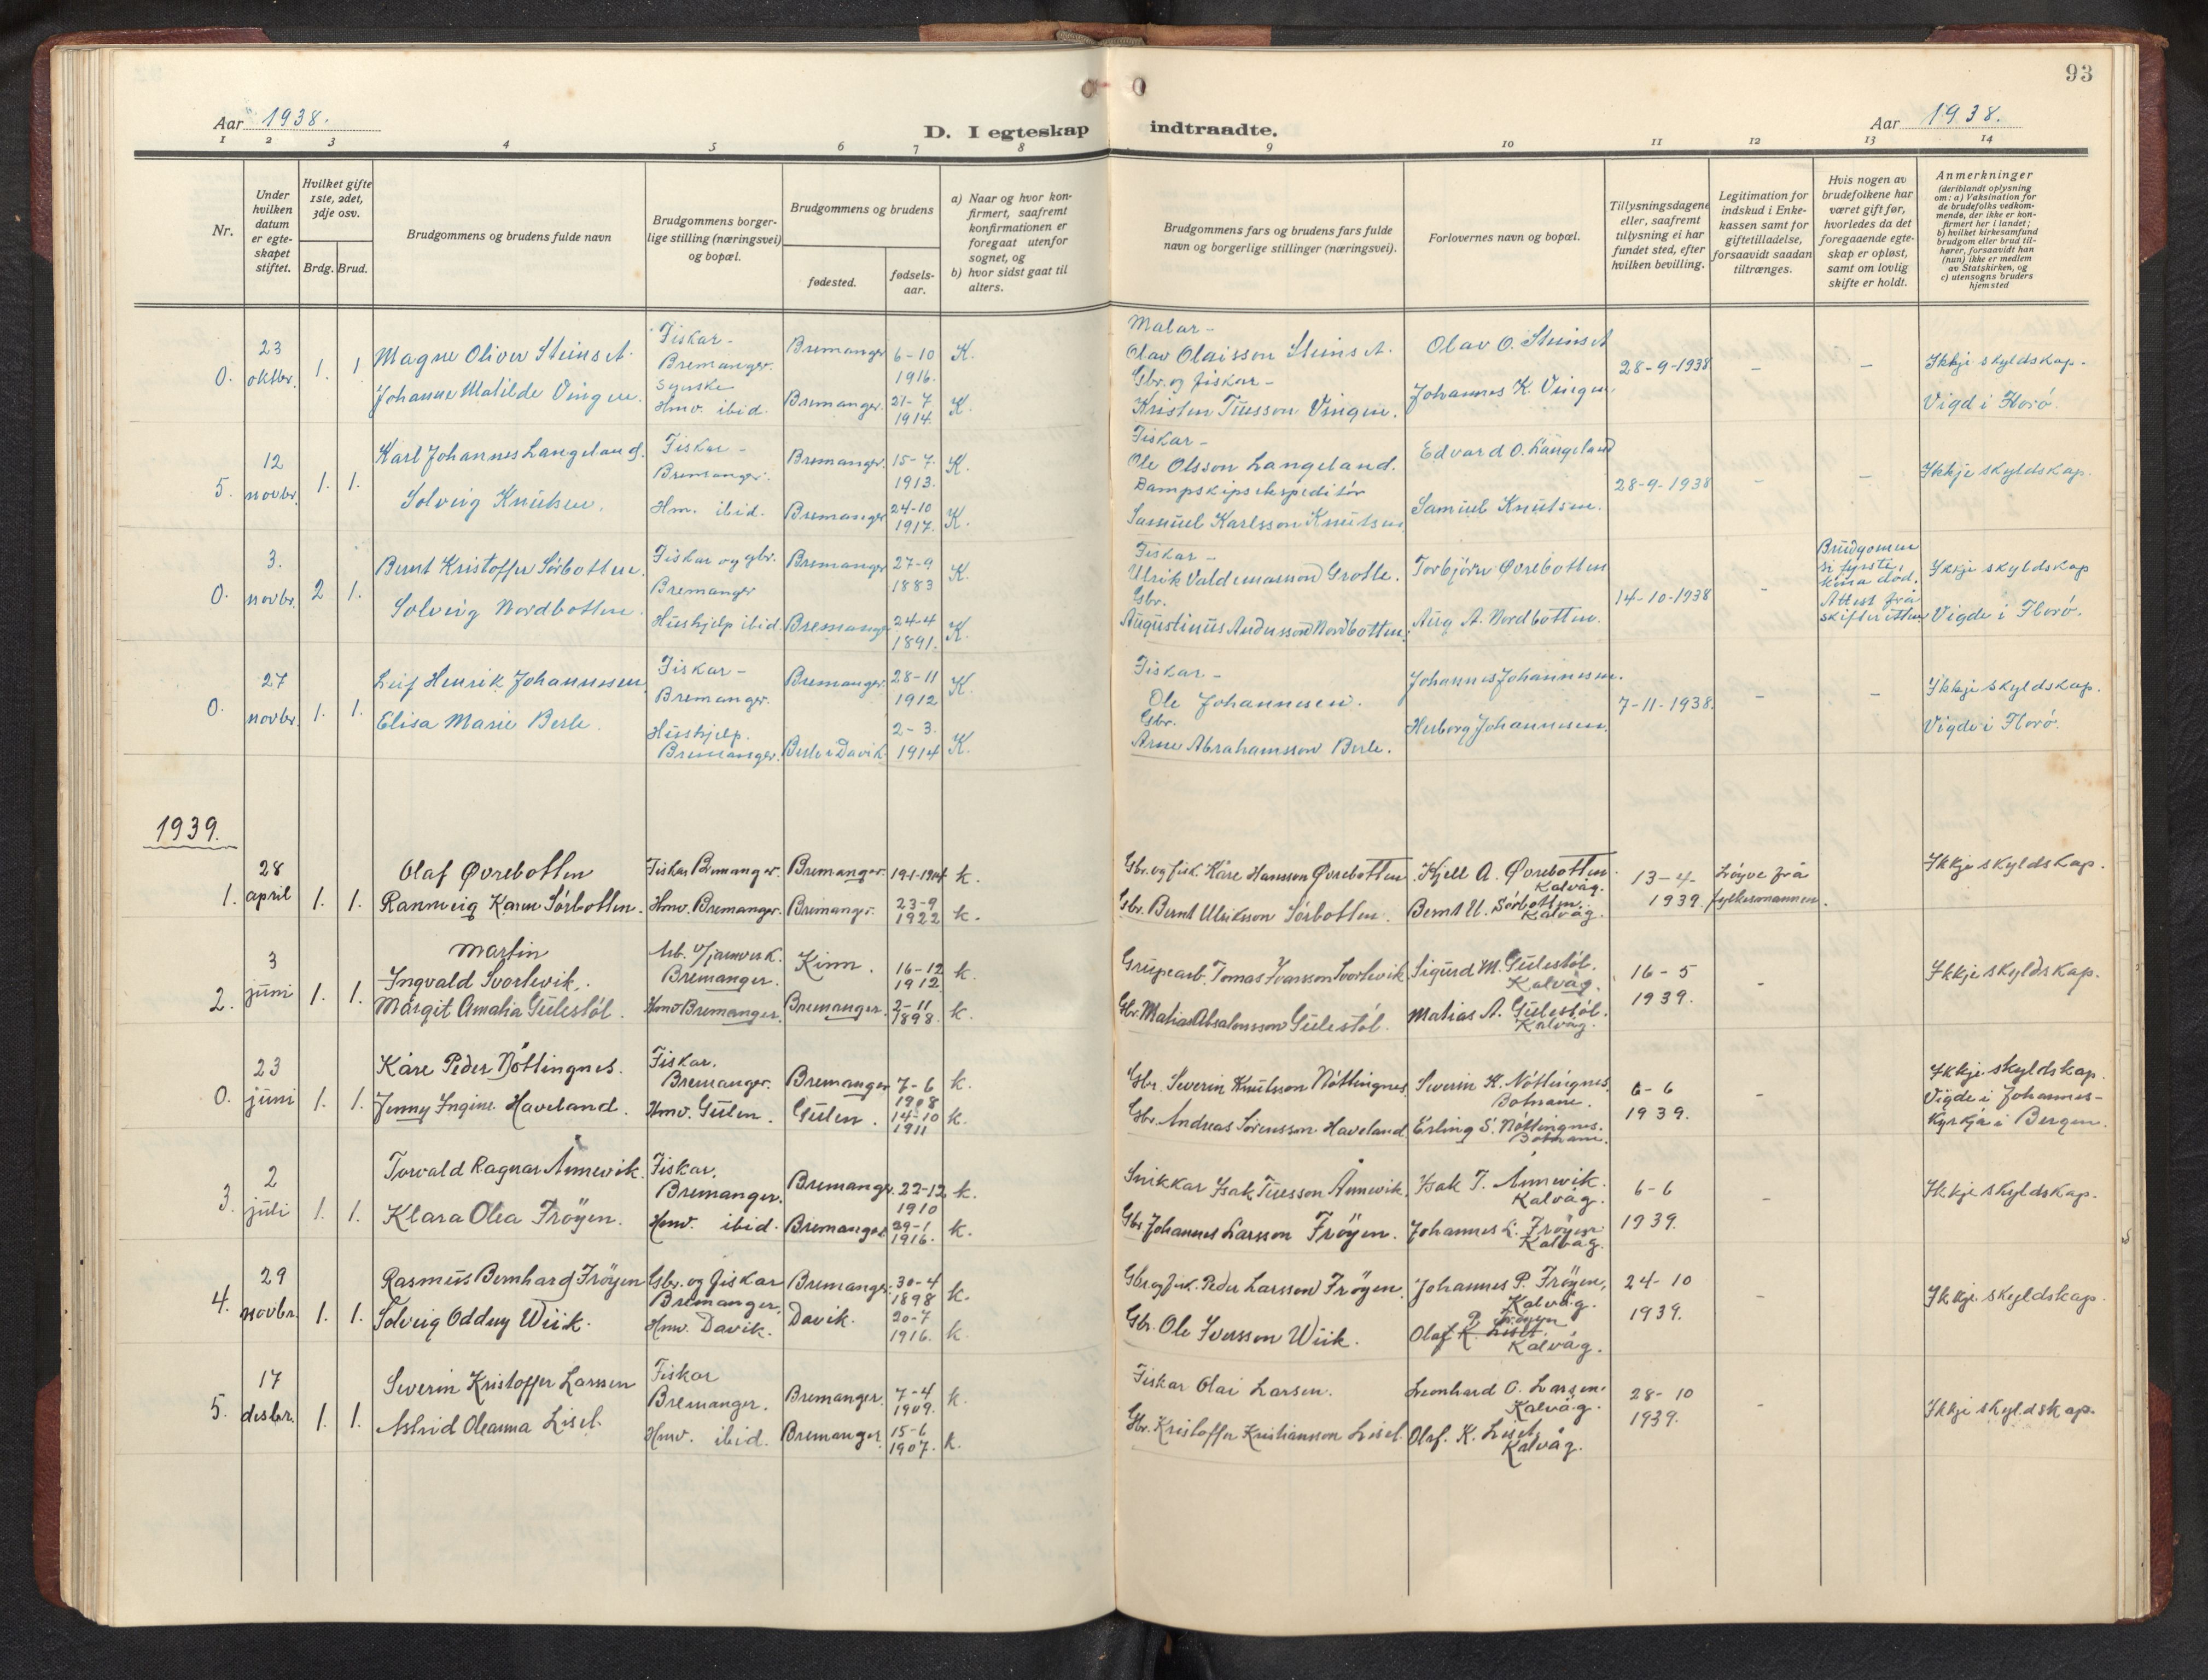 93
Aar 1938.
D. I egteskap indtraadte.
Aar 1938.
1 2 3 4 5 6 7 8 9 10 11 12 13 14
Nr.
Under hvilken datum er egte-skapet stiftet.
Hvilket gifte 1ste, 2det, 3dje osv.
Brdg. Brud.
Brudgommens og brudens fulde navn
Brudgommens borger-lige stilling (næringsvei) og bopæl.
Brudgommens og brudens
fødested.
fødsels-aar.
a) Naar og hvor kon-firmert, saafremt konfirmationen er foregaat utenfor sognet, og
b) hvor sidst gaat til alters.
Brudgommens fars og brudens fars fulde navn og borgerlige stillinger (næringsvei).
Forlovernes navn og bopæl.
Tillysningsdagene eller, saafremt tillysning ei har fundet sted, efter hvilken bevilling.
Legitimation for indskud i Enke-kassen samt for giftetilladelse, forsaavidt saadan tiltrænges.
Hvis nogen av brudefolkene har været gift før, hvorledes da det foregaaende egte-skap er opløst, samt om lovlig skifte er holdt.
Anmerkninger
(deriblandt oplysning om: a) Vaksination for de brudefolks vedkom-mende, der ikke er kon-firmert her i landet; b) hvilket kirkesamfund brudgom eller brud til-hører, forsaavidt han (hun) ikke er medlem av Statskirken, og c) utensogns bruders hjemsted
0. 23 oktbr. 1. 1 Magne Oliver Steinset. Fiskar - Bremanger. Bremanger 6-10 1916. K. Malar - Olav Olaisson Steinset. Olav O. Steinset 28-9-1938 - - Ikkje skyldskap.
Johanne Matilde Vingen. Hmv. ibid. Bremanger. 21-7 1914. K. Gbr. og fiskar - Kristen Tuesson Vingen. Johannes K. Vingen. Vigd i Florø.
5. 12 novbr. 1. 1. Karl Johannes Langeland. Fiskar - Bremanger. Bremanger. 15-7 1913. K. Fiskar - Ole Olsson Langeland. Edvard O. Langeland 28-9-1938 - - Ikkje skyldskap.
Solveig Knutsen. Hm. ibid. Bremanger 24-10 1917. K. Dampskipsekspeditør Samuel Karlsson Knutsen Samuel Knutsen.
0. 3. novbr. 2 1. Bernt Kristoffer Sørbotten. Fiskar og gbr. Bremanger Bremanger 27-9 1883 K. Fiskar - Ulrik Valdemarsson Grotle. Torbjørn Øvrebotten 14-10-1938 - Brudgomen si fyrste kona død. Attest frå skifteretten Ikkje skyldskap
Solveig Nordbotten. Hushjelp ibid. Bremanger 24-4 1891. K. Gbr. Augustinus Andersson Nordbotten. Aug A. Nordbotten. Vigde i Florø.
0. 27 novbr. 1. 1. Leif Henrik Johannessen Fiskar - Bremanger. Bremanger. 28-11 1912 K. Fiskar - Ole Johannesen. Johannes Johannesen. 7-11-1938. - - Ikkje skyldskap.
Elisa Marie Berle. Hushjelp. Bremanger. Berle i Davik 2-3. 1914 K. Gbr. Arne Abrahamsson Berle. Herborg Johannesen. Vigde i Florø.
1939.
1. 28 april 1. 1. Olaf Øvrebotten Fiskar Bremanger. Bremanger. 19-1-1904 k. Gbr. og fisk. Kåre Hansson Øvrebotten Kjell A. Øvrebotten. Kalvåg. 13-4- 1939. Løyve frå fylkesmannen. Ikkje skyldskap.
Rannveig Karen Sørbotten. Hmv. Bremanger. Bremanger. 23-9 1922 k. Gbr. Bernt Ulriksson Sørbotten. Bernt U. Sørbotten. Kalvåg.
2. 3 juni 1. 1. Martin Ingvald Svortevik. Arb. v/jernverk. Bremanger. Kinn. 16-12 1912 k. Grupearb. Tomas Ivarsson Svortevik Sigurd M. Gulestøl. Kalvåg. 16-5 1939. - Ikkje skyldskap.
Margit Amalia Gulestøl. Hmv Bremanger. Bremanger. 2-11 1898. k. Gbr. Matias Absalonsson Gulestøl. Matias A. Gulestøl. Kalvåg.
0. 23 juni 1. 1. Kåre Peder Nøttingnes. Fiskar. Bremanger. Bremanger 7-6 1908 k. Gbr. Severin Knutsson Nøttingnes Severin K. Nøttingnes Botnane. 6-6 1939. - Ikkje skyldskap. Vigde i Johannes-kyrkja i Bergen.
Jenny Ingine Haveland. Hmv. Gulen. Gulen. 14-10 1911 k. Gbr. Andreas Sørensson Haveland Erling S. Nøttingnes. Botnane.
3. 2 juli 1. 1. Torvald Ragnar Annevik. Fiskar. Bremanger. Bremanger. 22-12 1910 k. Snikkar Isak Tuesson Ånnevik. Isak T. Ånnevik. Kalvåg. 6-6 1939. - Ikkje skyldskap.
Klara Olea Frøyen. Hmv. ibid. Bremanger 29-1 1916. k. Gbr. Johannes Larsson Frøyen. Johannes L. Frøyen. Kalvåg.
4. 29 novbr. 1. 1. Rasmus Bernhard Frøyen Gbr. og fiskar Bremanger. Bremanger. 30-4 1898 k. Gbr og fisk. Peder Larsson Frøyen. Johannes P. Frøyen, Kalvåg. 24-10 1939. - Ikkje skyldskap.
Solveig Oddny Wiik. Hmv. Davik. Davik. 20-7 1916. k. Gbr. Ole Iversson Wiik. Olaf K. Liset. P. Frøyen Kalvåg.
5. 17 desbr. 1. 1. Severin Kristoffer Larssen Fiskar Bremanger. Bremanger. 7-4 1909. k. Fiskar Olai Larsen. Leonhard O. Larsen. Kalvåg. 28-10 1939. - Ikkje skyldskap.
Astrid Oleanna Liset. Hmv. ibid. Bremanger 15-6 1907. k. Gbr. Kristoffer Kristiansson Liset. Olaf. K. Liset. Kalvåg.